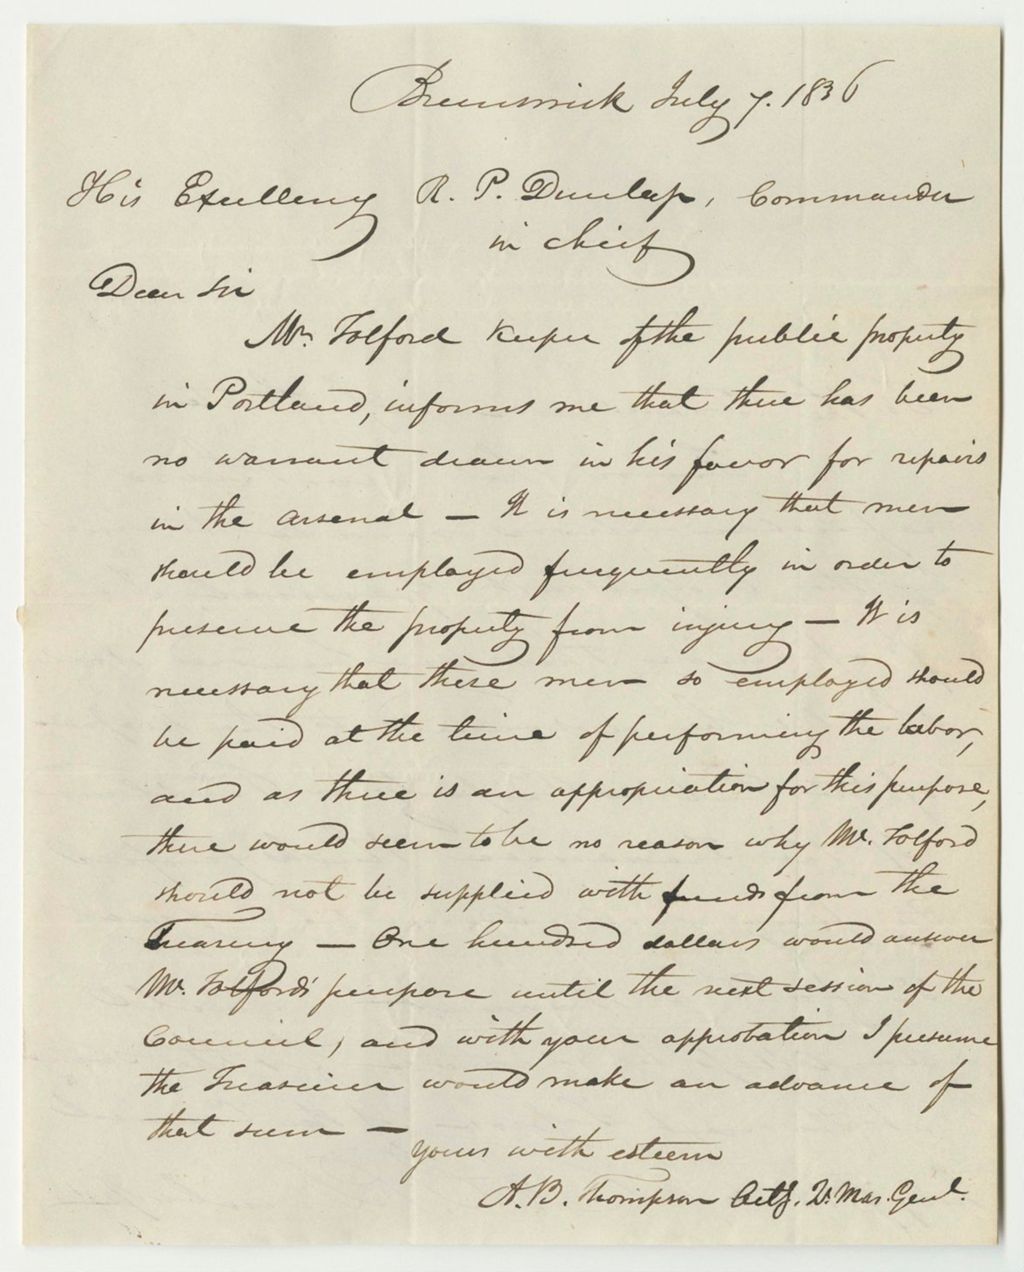 Brunswick July 7. 1836
His Excellency R. P. Dunlap, Commander
in chief
Dear Sir
Mr. Tolford Keeper of the public property
in Portland, informs me that there has been
no warrant drawn in his favor for repairs
in the arsenal — It is necessary that men
should be employed frequently in order to
preserve the property from injury — It is
necessary that these men so employed should
be paid at the time of performing the labor,
and as there is an appropriation for this purpose,
there would seem to be no reason why Mr. Tolford
should not be supplied with funds from the
Treasury — One hundred dollars would answer
Mr. Tolford's purpose until the next session of the
Council, and with your approbation I presume
the Treasurer would make an advance of
that sum —
yours with esteem
A. B. Thompson Actg. Q. Mas. Genl.